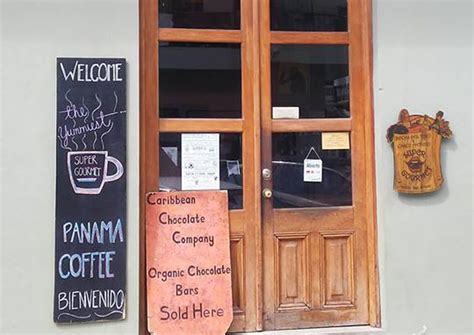 WELCOME
the
Yummiest
SUPER
GOURMET
PANAMA
COFFEE
BIENVENIDO
Caribbean
Chocolate
Company
Organic Chocolate
Bars
Sold Here
Abierto
SUPER
GOURMET